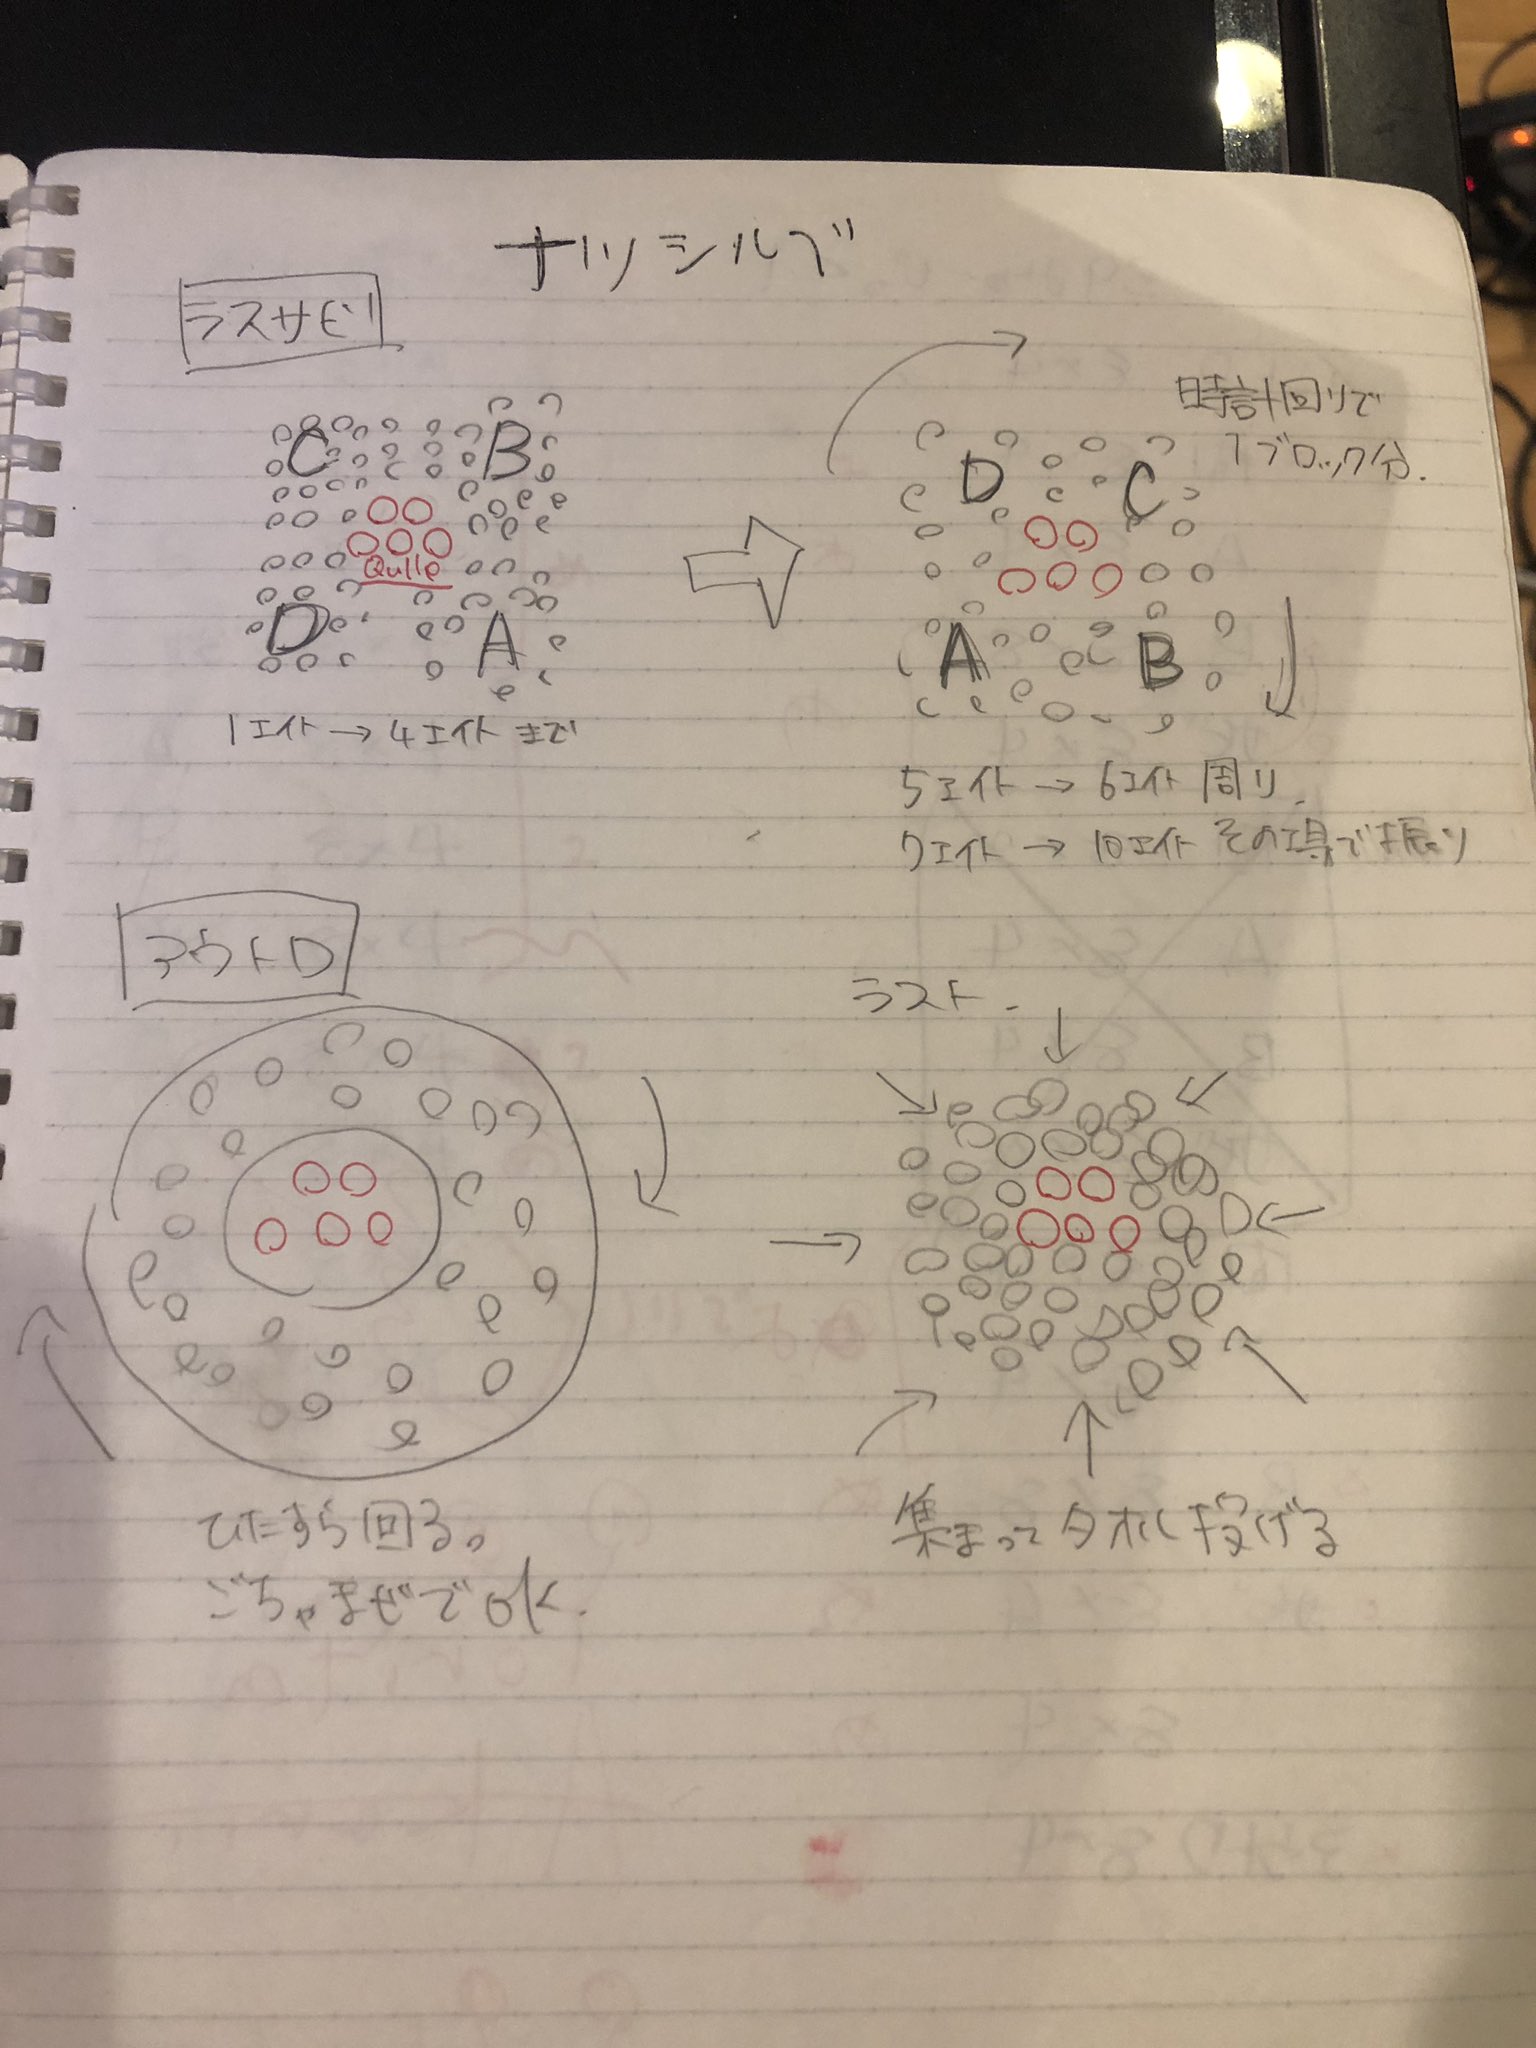 ナツシルブ
ラスサビ
C
B
Qulle
D
A
1エイト→4エイトまで
時計回りで
1ブロック分.
D
C
A
B
5エイト→6エイト周り.
7エイト→10エイトその場で振り
アウトロ
ひたすら回る。
ごちゃまぜでOK.
ラスト.
集まってタオル投げる